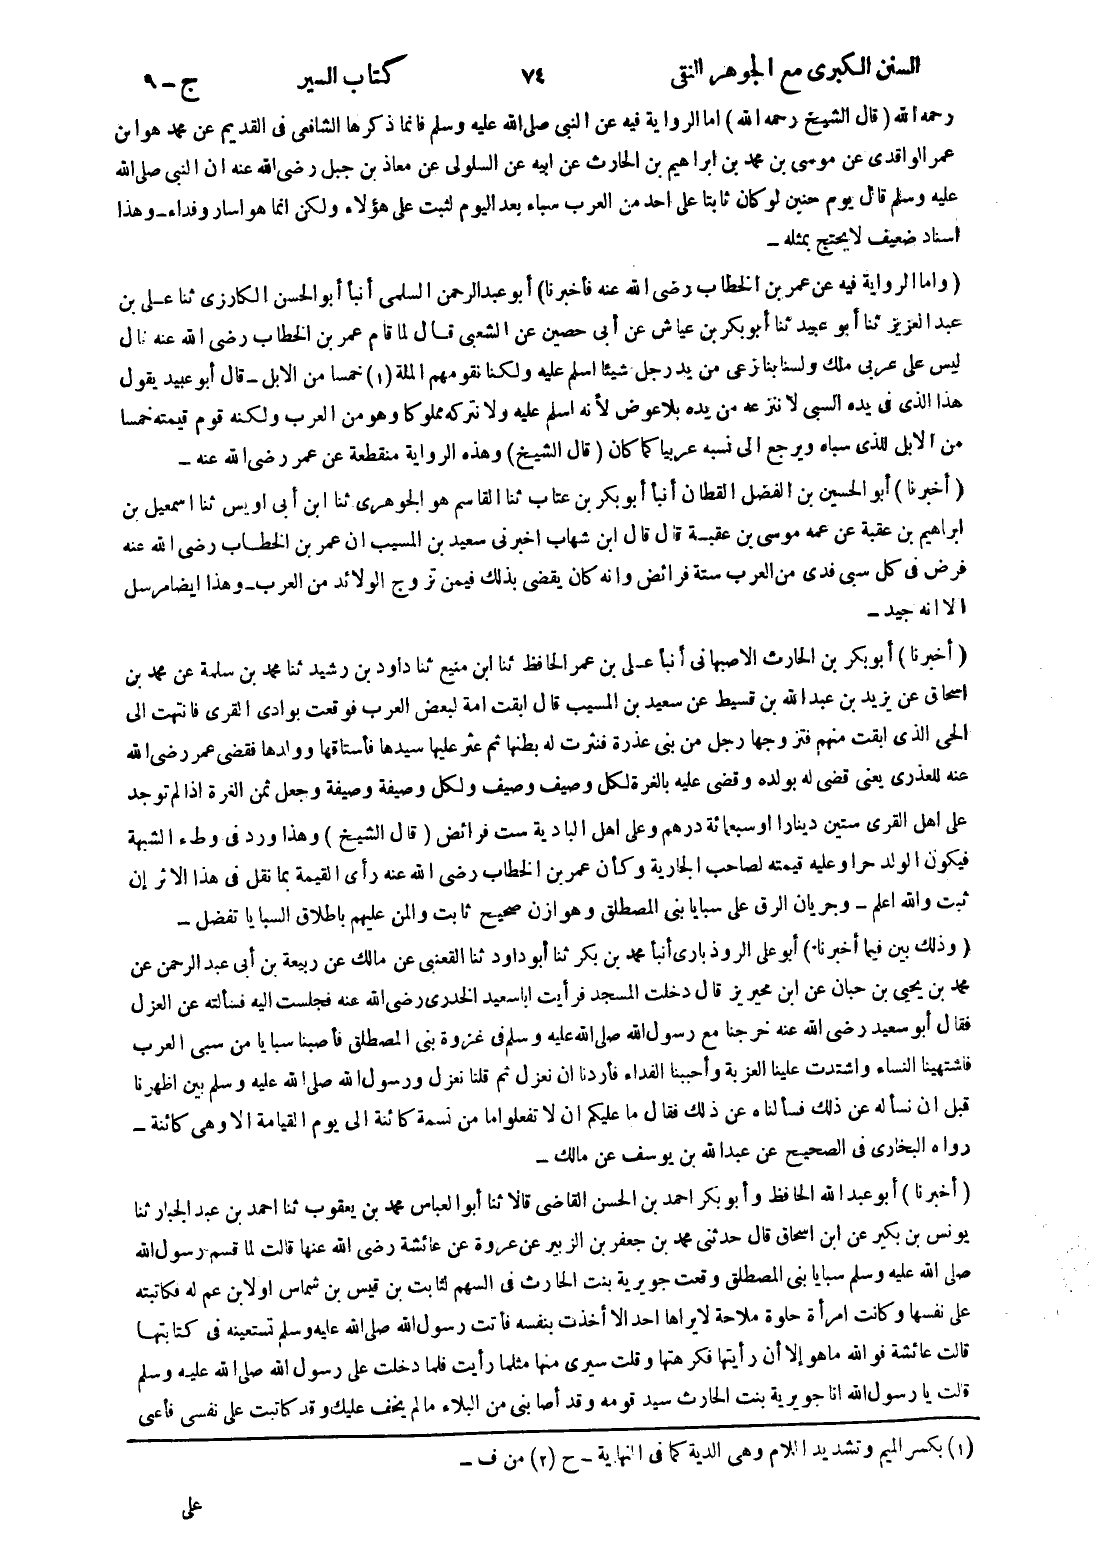 السنن الكبرى مع الجوهر النقى ٧٤ كتاب السير ج - ٩
رحمه الله ( قال الشيخ رحمه الله ) اما الرواية فيه عن النبى صلى الله عليه وسلم فانما ذكرها الشافعى فى القديم عن محمد هو ابن
عمر الواقدى عن موسى بن محمد بن ابراهيم بن الحارث عن ابيه عن السلولى عن معاذ بن جبل رضى الله عنه ان النبى صلى الله
عليه وسلم قال يوم حنين لو كان ثابتا على احد من العرب سباء بعد اليوم لثبت على هؤلاء ولكن انما هو اسار وفداء - وهذا
اسناد ضعيف لا يحتج بمثله -
( واما الرواية فيه عن عمر بن الخطاب رضى الله عنه فأخبرنا ) أبو عبد الرحمن السلمى أنبأ أبو الحسن الكارزى ثنا على بن
عبد العزيز ثنا أبو عبيد ثنا أبو بكر بن عياش عن أبى حصين عن الشعبى قال لما قام عمر بن الخطاب رضى الله عنه قال
ليس على عربى ملك ولسنا بنازعى من يد رجل شيئا اسلم عليه ولكنا نقومهم الملة (١) خمسا من الابل - قال أبو عبيد يقول
هذا الذى فى يده السبى لا ننزعه من يده بلا عوض لأنه اسلم عليه ولا نتركه مملوكا وهو من العرب ولكنه قوم قيمته خمسا
من الابل للذى سباه ويرجع الى نسبه عربيا كما كان ( قال الشيخ ) وهذه الرواية منقطعة عن عمر رضى الله عنه -
( أخبرنا ) أبو الحسين بن الفضل القطان أنبأ أبو بكر بن عتاب ثنا القاسم هو الجوهرى ثنا ابن أبى اويس ثنا اسمعيل بن
ابراهيم بن عقبة عن عمه موسى بن عقبة قال قال ابن شهاب اخبرنى سعيد بن المسيب ان عمر بن الخطاب رضى الله عنه
فرض فى كل سبى فدى من العرب ستة فرائض وانه كان يقضى بذلك فيمن تزوج الولائد من العرب - وهذا ايضا مرسل
الا انه جيد -
( أخبرنا ) أبو بكر بن الحارث الاصبهانى أنبأ على بن عمر الحافظ ثنا ابن منيع ثنا داود بن رشيد ثنا محمد بن سلمة عن محمد بن
اسحاق عن يزيد بن عبد الله بن قسيط عن سعيد بن المسيب قال ابقت امة لبعض العرب فوقعت بوادى القرى فانتهت الى
الحى الذى ابقت منهم فتزوجها رجل من بنى عذرة فنثرت له بطنها ثم عثر عليها سيدها فأستاقها وولدها فقضى عمر رضى الله
عنه للعذرى يعنى قضى له بولده وقضى عليه بالغرة لكل وصيف وصيف ولكل وصيفة وصيفة وجعل ثمن الغرة اذا لم توجد
على اهل القرى ستين دينارا او سبعمائة درهم وعلى اهل البادية ست فرائض ( قال الشيخ ) وهذا ورد فى وطء الشبهة
فيكون الولد حرا وعليه قيمته لصاحب الجارية وكأن عمر بن الخطاب رضى الله عنه رأى القيمة بما نقل فى هذا الاثر إن
ثبت والله اعلم - وجريان الرق على سبايا بنى المصطلق وهوازن صحيح ثابت والمن عليهم باطلاق السبايا تفضل -
( وذلك بين فيما أخبرنا ) أبو على الروذبارى أنبأ محمد بن بكر ثنا أبو داود ثنا القعنبى عن مالك عن ربيعة بن أبى عبد الرحمن عن
محمد بن يحيى بن حبان عن ابن محيريز قال دخلت المسجد فرأيت ابا سعيد الخدرى رضى الله عنه فجلست اليه فسألته عن العزل
فقال أبو سعيد رضى الله عنه خرجنا مع رسول الله صلى الله عليه وسلم فى غزوة بنى المصطلق فأصبنا سبايا من سبى العرب
فاشتهينا النساء واشتدت علينا العزبة وأحببنا الفداء فأردنا ان نعزل ثم قلنا نعزل ورسول الله صلى الله عليه وسلم بين اظهرنا
قبل ان نسأله عن ذلك فسألناه عن ذلك فقال ما عليكم ان لا تفعلوا ما من نسمة كائنة الى يوم القيامة الا وهى كائنة -
رواه البخارى فى الصحيح عن عبد الله بن يوسف عن مالك -
( أخبرنا ) أبو عبد الله الحافظ وأبو بكر احمد بن الحسن القاضى قالا ثنا أبو العباس محمد بن يعقوب ثنا احمد بن عبد الجبار ثنا
يونس بن بكير عن ابن اسحاق قال حدثنى محمد بن جعفر بن الزبير عن عروة عن عائشة رضى الله عنها قالت لما قسم رسول الله
صلى الله عليه وسلم سبايا بنى المصطلق وقعت جويرية بنت الحارث فى السهم لثابت بن قيس بن شماس او لابن عم له فكاتبته
على نفسها وكانت امرأة حلوة ملاحة لا يراها احد الا أخذت بنفسه فأتت رسول الله صلى الله عليه وسلم تستعينه فى كتابتها
قالت عائشة فو الله ما هو إلا أن رأيتها فكرهتها وقلت سيرى منها مثلما رأيت فلما دخلت على رسول الله صلى الله عليه وسلم
قالت يا رسول الله انا جويرية بنت الحارث سيد قومه وقد أصابنى من البلاء ما لم يخف عليك وقد كاتبت على نفسى فأعنى
(١) بكسر الميم وتشديد اللام وهى الدية كما فى النهاية - ح (٢) من ف -
على